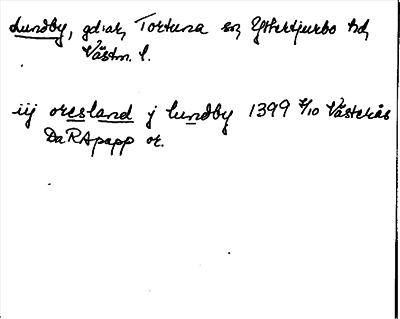 Lundby, gd:ar, Tortuna sn, Yttertjurbo hd,
Västm. l.
iij oresland j lundby 1399 7/10 Västerås
DaRApapp or.